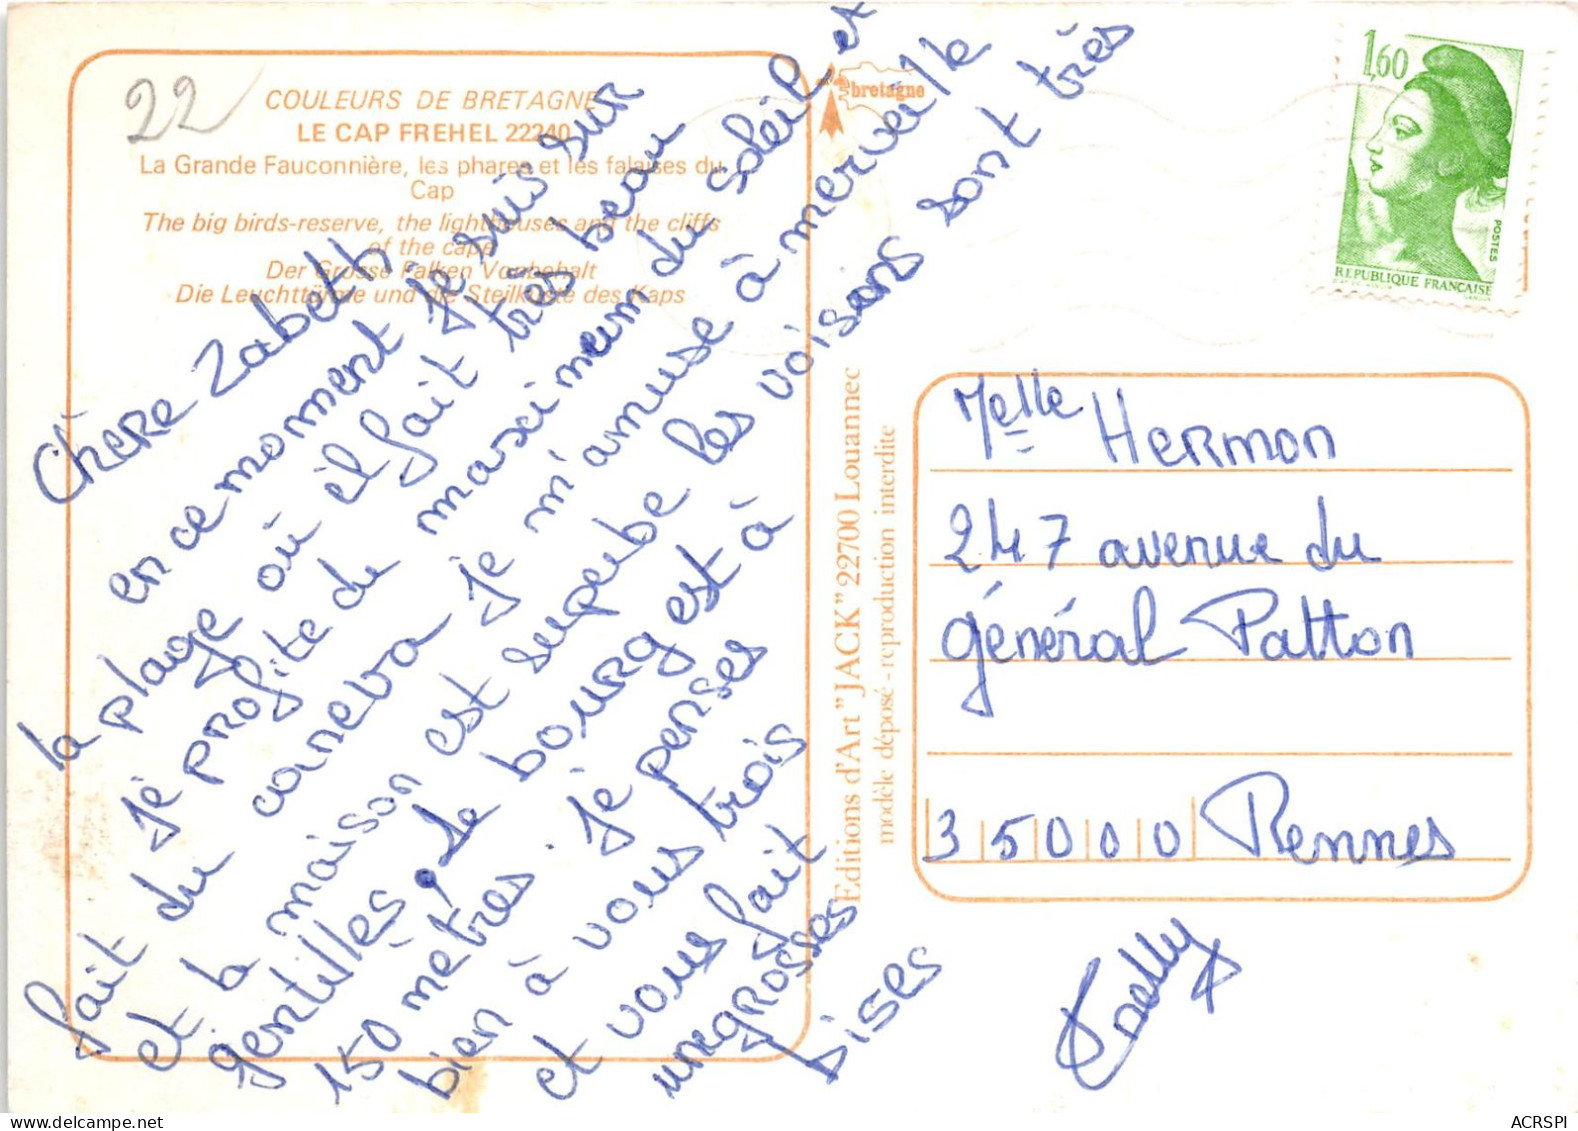 22
COULEURS DE BRETAGNE
LE CAP FREHEL 22240
La Grande Fauconnière, les phares et les falaises du
Cap
The big birds-reserve, the lighthouses and the cliffs
of the cape
Der Grosse Falken Vorbehalt
Die Leuchttürme und die Steilküste des Kaps
bretagne
1,60
POSTES
REPUBLIQUE FRANÇAISE
Chère Zabeth
en ce moment je suis sur
la plage où il fait très beau
je profite du maximum du soleil et
fait du caneva je m'amuse à merveille
et la maison est superbe les voisons sont très
gentilles, le bourg est à
150 mètres. je penses
bien à vous trois
et vous fait
une grosses
bises
Editions d'Art "JACK" 22700 Louannec
modèle déposé - reproduction interdite
Melle Hermon
247 avenue du
général Patton
35000 Rennes
Faelly
ACRSPI